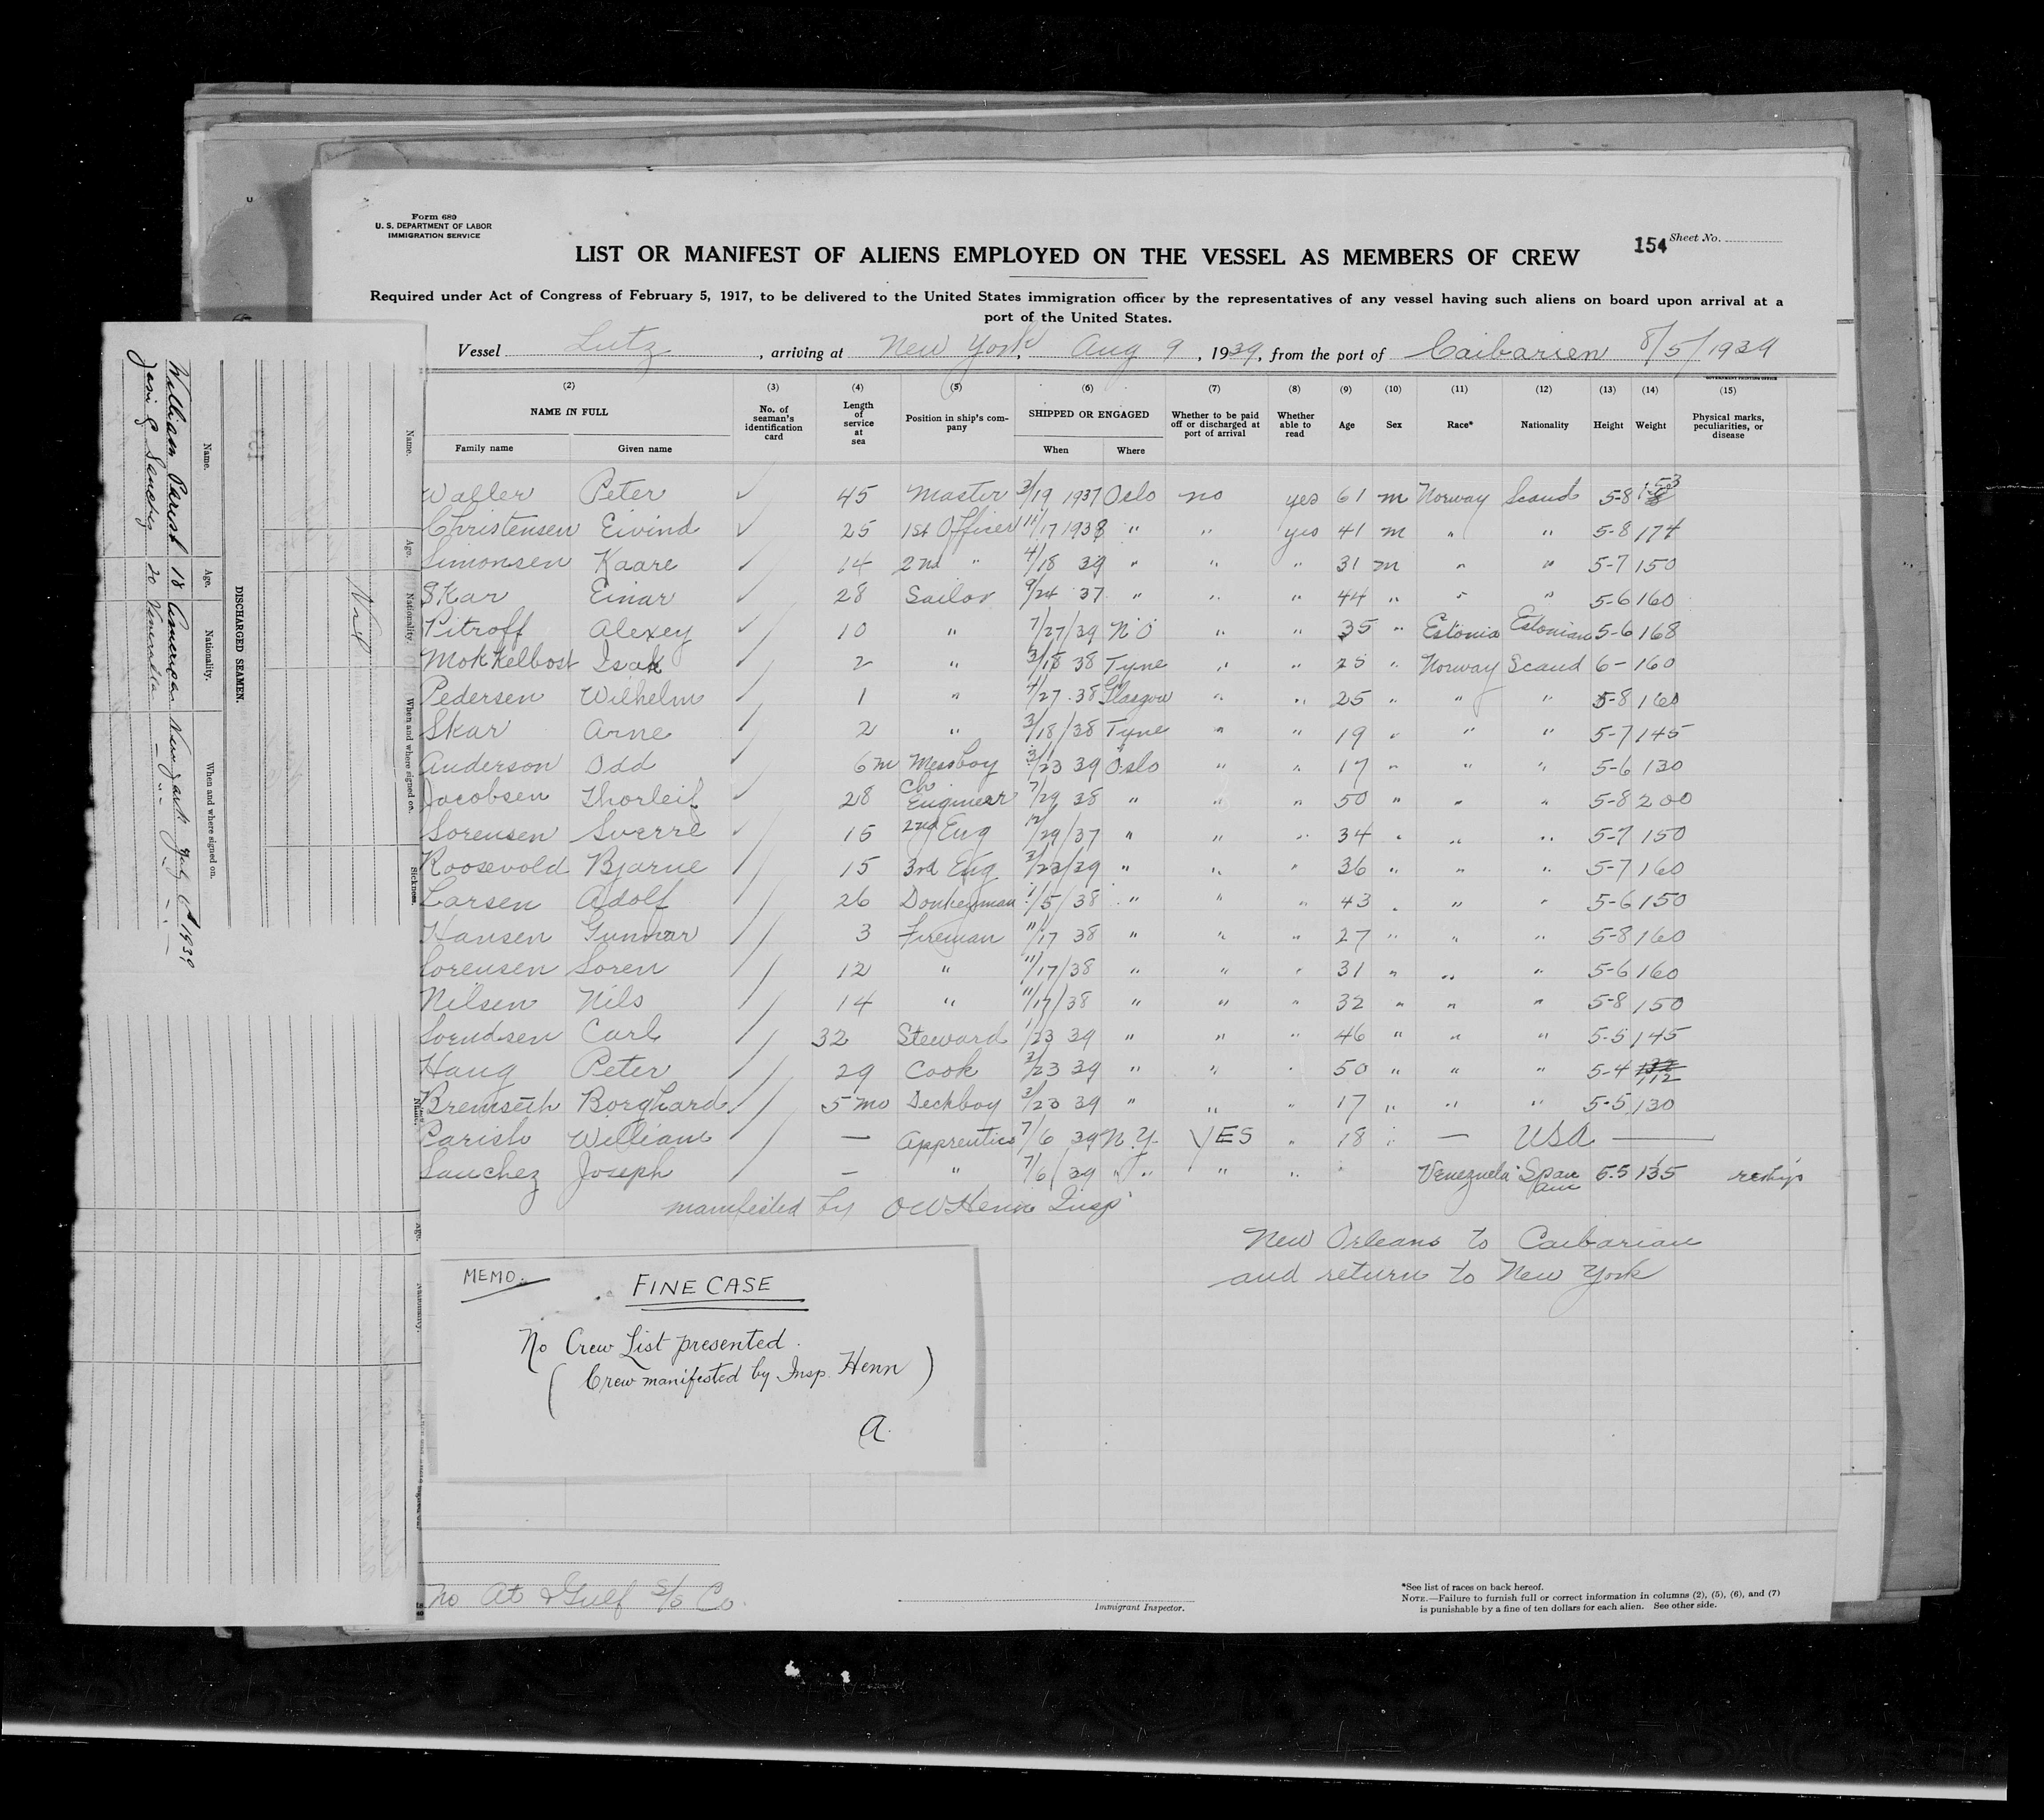 Form 680
U. S. DEPARTMENT OF LABOR
IMMIGRATION SERVICE
154 Sheet No.
LIST OR MANIFEST OF ALIENS EMPLOYED ON THE VESSEL AS MEMBERS OF CREW
Required under Act of Congress of February 5, 1917, to be delivered to the United States immigration officer by the representatives of any vessel having such aliens on board upon arrival at a
port of the United States.
Vessel Lutz, arriving at New York, Aug 9, 1939, from the port of Caibarien 8/5/1939
(2) (3) (4) (5) (6) (7) (8) (9) (10) (11) (12) (13) (14) (15)
NAME IN FULL No. of seaman's identification card Length of service at sea Position in ship's company SHIPPED OR ENGAGED Whether to be paid off or discharged at port of arrival Whether able to read Age Sex Race* Nationality Height Weight Physical marks, peculiarities, or disease
Family name Given name When Where
Waller Peter ✓ 45 Master 3/19 1937 Oslo no yes 61 m Norway Scand 5-8 153
Christensen Eivind ✓ 25 1st Officer 11/17 1938 " " yes 41 m " " 5-8 174
Simonsen Kaare ✓ 14 2nd " 4/18 39 " " " 31 m " " 5-7 150
Skar Einar ✓ 28 Sailor 9/24 37 " " " 44 " " " 5-6 160
Pitroff Alexey ✓ 10 " 7/27/39 N O " " 35 " Estonia Estonian 5-6 168
Mokkelbost Isak ✓ 2 " 3/18 38 Tyne " " 25 " Norway Scand 6- 160
Pedersen Wilhelm ✓ 1 " 4/27 38 Glasgow " " 25 " " " 5-8 160
Skar Arne ✓ 2 " 3/18/38 Tyne " " 19 " " " 5-7 145
Anderson Odd ✓ 6m Messboy 3/23 39 Oslo " " 17 " " " 5-6 130
Jacobsen Thorleif ✓ 28 Ch Engineer 7/29 38 " " " 50 " " " 5-8 200
Sorensen Sverre ✓ 15 2nd Eng 12/29/37 " " " 34 " " " 5-7 150
Roosevold Bjarne ✓ 15 3rd Eng 3/23/39 " " " 36 " " " 5-7 160
Larsen Adolf ✓ 26 Donkeyman 1/5/38 " " " 43 " " " 5-6 150
Hansen Gunnar ✓ 3 Fireman 11/17 38 " " " 27 " " " 5-8 160
Sorensen Soren ✓ 12 " 11/17/38 " " " 31 " " " 5-6 160
Nilsen Nils ✓ 14 " 11/17/38 " " " 32 " " " 5-8 150
Svendsen Carl ✓ 32 Steward 1/23 39 " " " 46 " " " 5-5 145
Haug Peter ✓ 29 Cook 3/23 39 " " " 50 " " " 5-4 112
Bremseth Borghard ✓ 5 mo Deckboy 3/23 39 " " " 17 " " " 5-5 130
Parish William ✓ — Apprentice 7/6 39 N.Y. YES " 18 " — USA —
Sanchez Joseph ✓ — " 7/6/39 " " " " " Venezuela Span Am 5.5 135 reships
manifested by O W Henn Insp
New Orleans to Caibarian
and return to New York
MEMO.
FINE CASE
No Crew List presented.
(Crew manifested by Insp. Henn)
A.
No At & Gulf S/S Co.
Immigrant Inspector.
*See list of races on back hereof.
NOTE.—Failure to furnish full or correct information in columns (2), (5), (6), and (7)
is punishable by a fine of ten dollars for each alien. See other side.
DISCHARGED SEAMEN.
Name. Age. Nationality. When and where signed on.
William Parish 18 American New York July 6 1939
20 Venezuela — " —
Name. Age. Nationality. When and where signed on. Sickness.
Nil
Name. Age. Nationality.